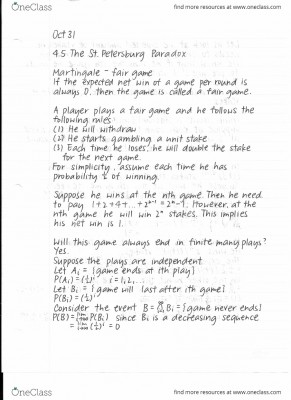 OneClass
find more resources at oneclass.com
Oct 31
4.5 The St. Petersburg Paradox
Martingale - fair game
If the expected net win of a game per round is
always 0, then the game is called a fair game.
A player plays a fair game and he follows the
following rules:
(1) He will withdraw
(2) He starts gambling a unit stake
(3) Each time he loses, he will double the stake
for the next game.
For simplicity, assume each time he has
probability ½ of winning.
Suppose he wins at the nth game. Then he need
to pay 1+2+4+...+2ⁿ⁻¹ = 2ⁿ-1. However, at the
nth game he will win 2ⁿ stakes. This implies
his net win is 1.
Will this game always end in finite many plays?
Yes.
Suppose the plays are independent
Let Ai = {game ends at ith play}
P(Ai) = (½)ⁱ i = 1,2,...
Let Bi = {game will last after ith game}
P(Bi) = (½)ⁱ
Consider the event B = ∩ Bi = {game never ends}
P(B) = lim P(Bi) since Bi is a decreasing sequence
= lim (½)ⁱ = 0
OneClass
find more resources at oneclass.com